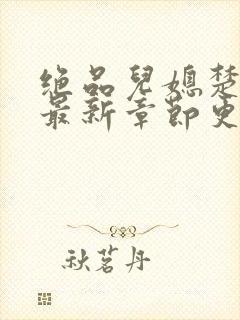 绝品儿媳楚
最新章节更
秋茗丹